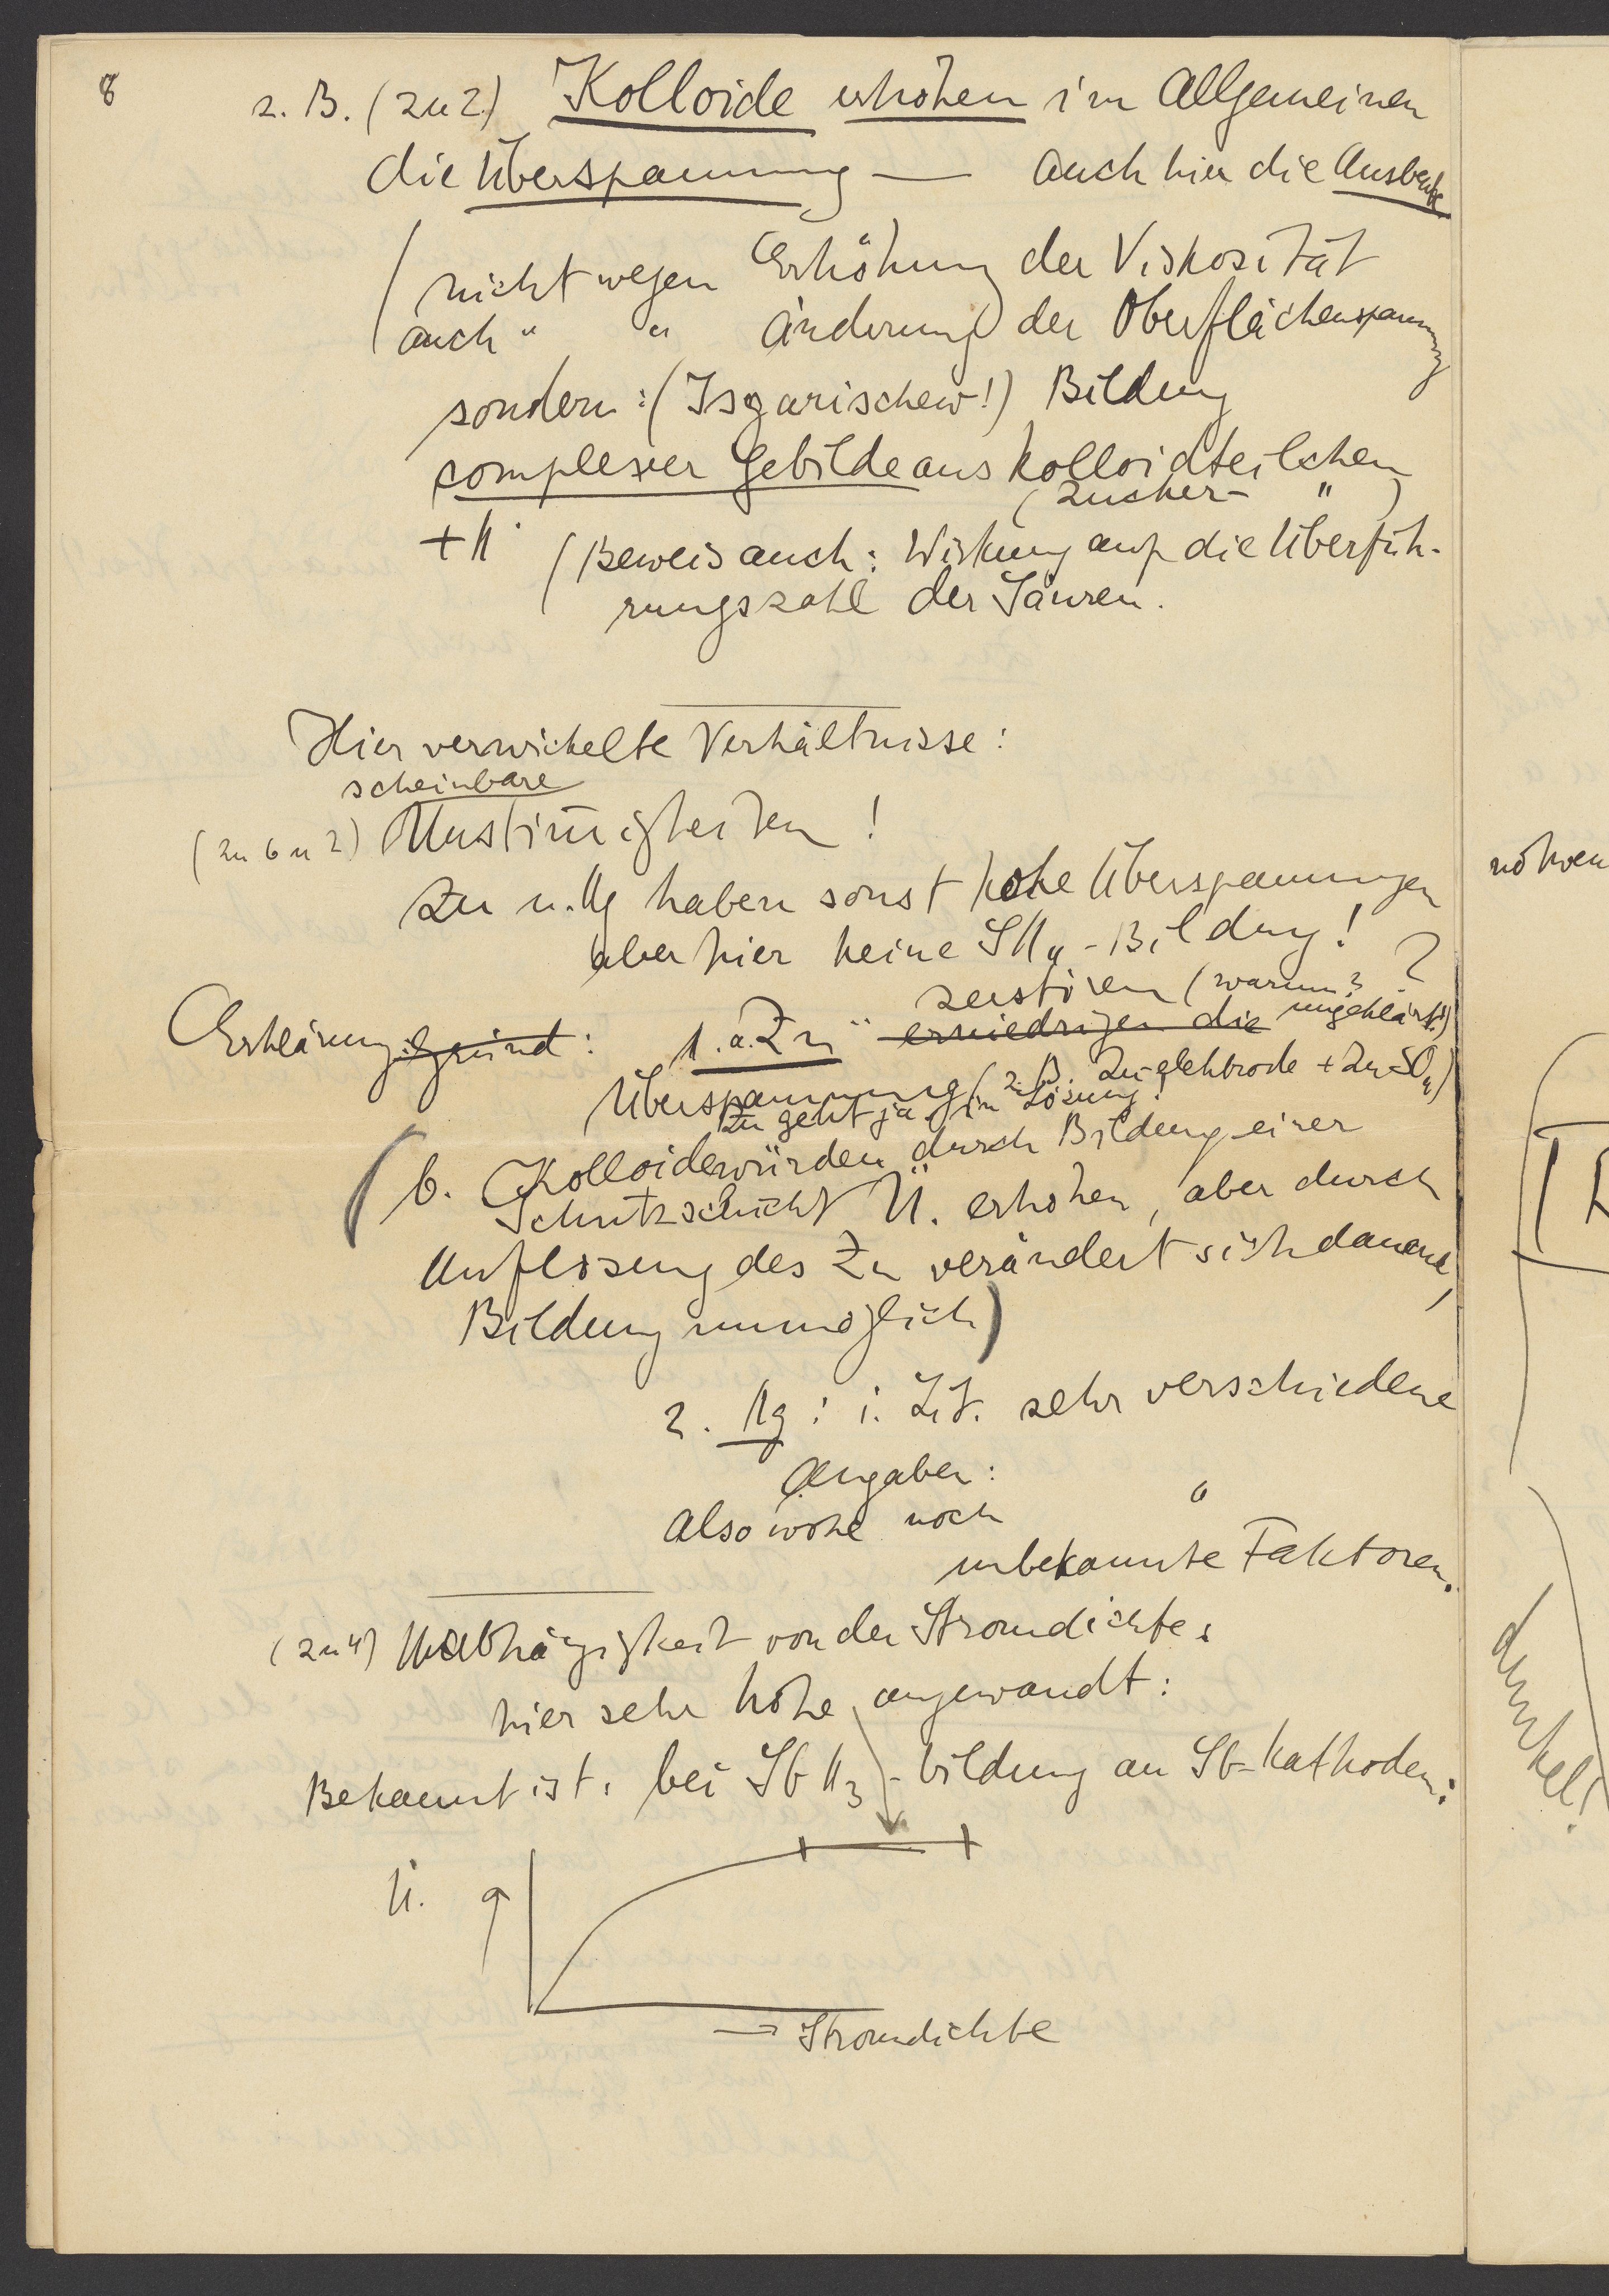 8
z. B. (zu 2) Kolloide erhöhen im Allgemeinen
die Überspannung — auch hier die Ausbeute
(nicht wegen Erhöhung der Viskosität
auch " " Änderung der Oberflächenspannung
sondern: (Isgarischew!) Bildung
complexer Gebilde aus Kolloidteilchen
(Zucker- " )
+ H˙ (Beweis auch: Wirkung auf die Überfüh-
rungszahl der Säuren.
Hier verwickelte Verhältnisse:
scheinbare
(zu 6 u 2) Unstim̄igkeiten!
Zn u. Hg haben sonst hohe Überspannungen
aber hier keine SH4-Bildung! ?
zerstören (warum? ungeklärt!)
Erklärungsgründ: 1. a. Zn¨ erniedrigen die
Überspannung (z. B. Zn-elektrode + ZnSO4)
Zn geht ja in Lösung!
(b. Kolloide würden durch Bildung einer
Schutzschicht Ü. erhöhen, aber durch
Auflösung des Zn verändert sich dauernd,
Bildung unmöglich)
2. Hg: i. Lit. sehr verschiedene
Angaben:
Also wohl noch "
unbekannte Faktoren.
(zu 4) Unabhängigkeit von der Stromdichte:
hier sehr hohe angewandt:
Bekannt ist: bei SbH3-bildung an Sb-Kathoden:
Ü.
→ Stromdichte
dunkel!